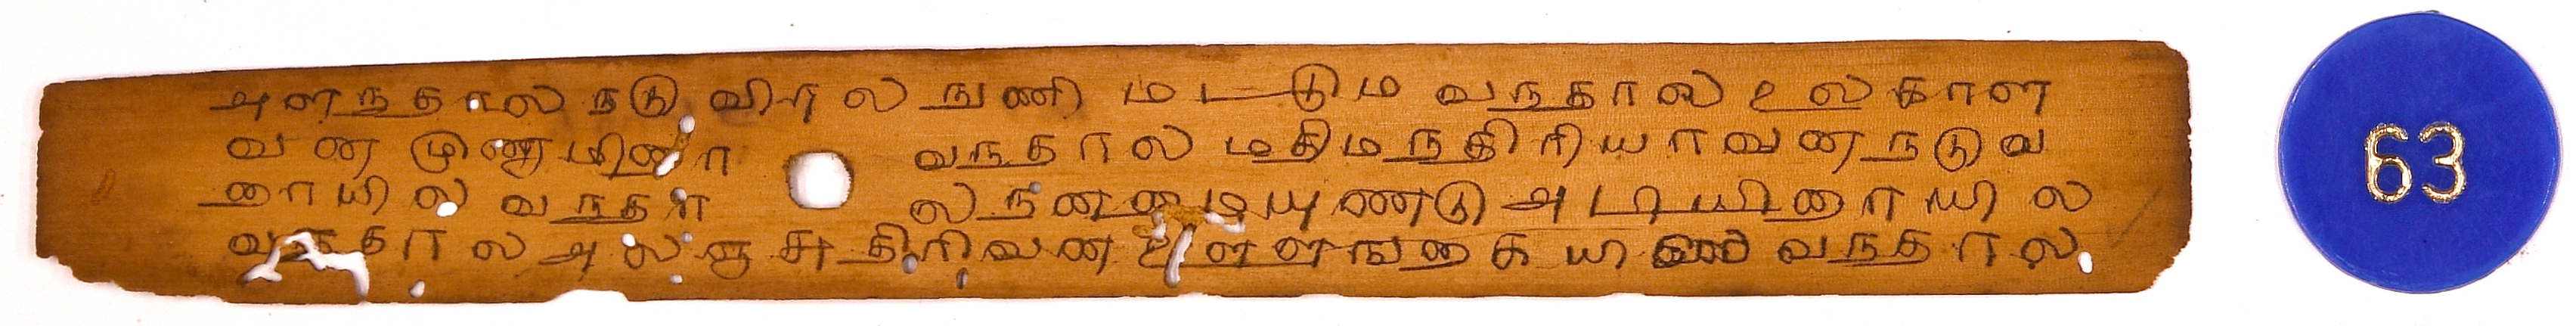 அளநதால நடு விரல நுணி மடடும வநதால உலகாள
வன முனறாமிறை வநதால மதிமநதிரியாவன நடுவ
றையில வநதா ல நனமையுணடு அடியிறையில
வநதால அலஞசதிரிவன உளளஙகையில வநதால
63